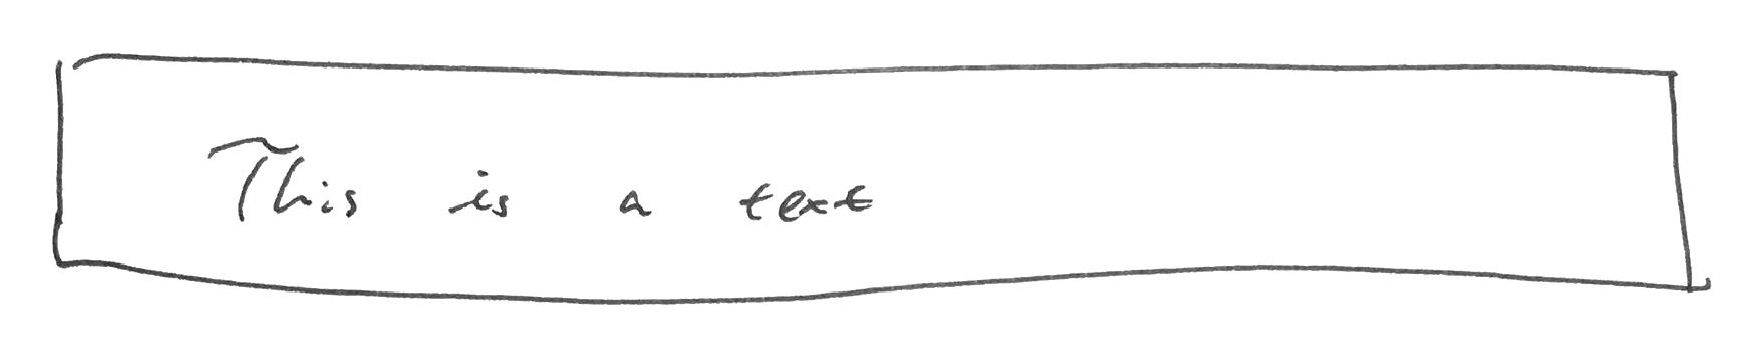 This is a text